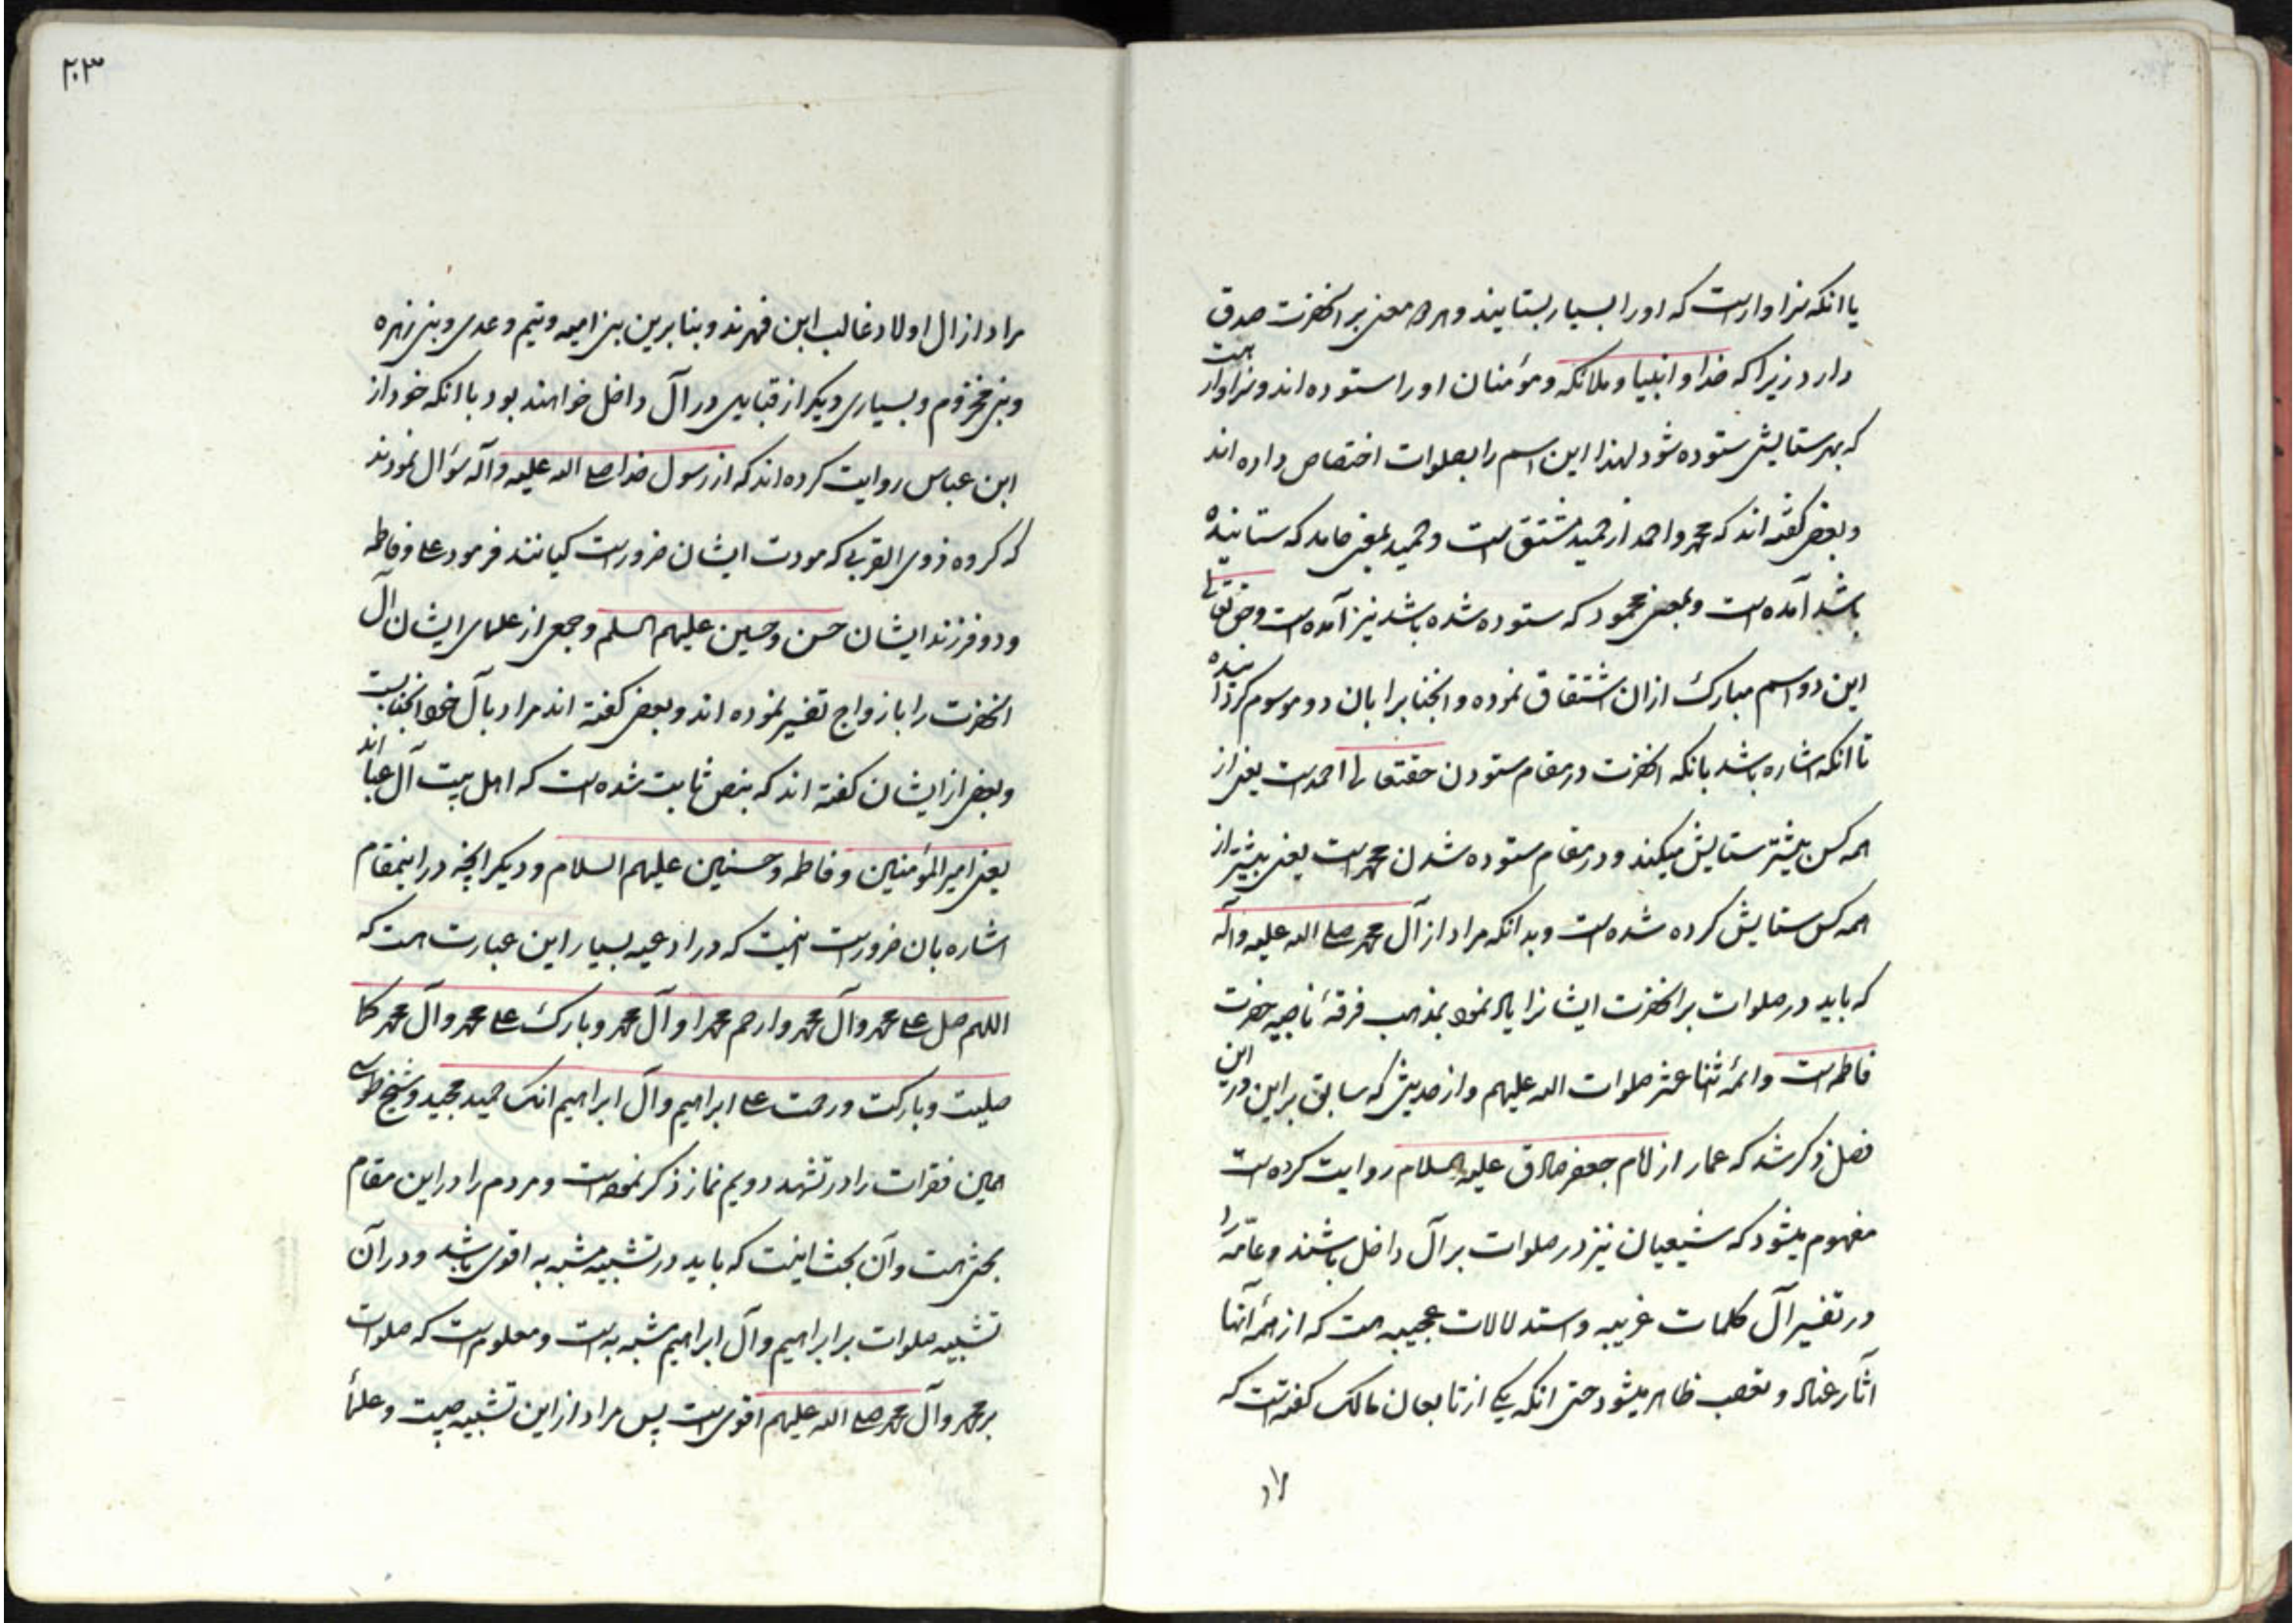 یا انکه سزاوارست که اورا بسیار بستایند و هر دو معنی بر انحضرت صدق
دارد زیرا که خدا و انبیا و ملائکه و مؤمنان اورا ستوده اند و سزاوار است
که بهر ستایش ستوده شود لهذا این اسم را بصلوات اختصاص داده اند
و بعضی کفته اند که محمد و احمد از حمید مشتق است و حمید بمعنی حامد که ستاینده
باشد آمده است و بمعنی محمود که ستوده شده باشد نیز آمده است و حق تعالی
این دو اسم مبارک از ان اشتقاق نموده و انجنابرا بان دو موسوم کردانیده
تا انکه اشاره باشد بانکه انحضرت در مقام ستودن حقتعالی احمدست یعنی از
همه کس بیشتر ستایش میکند و در مقام ستوده شدن محمد است یعنی بیشتر از
همه کس ستایش کرده شده است و بدانکه مراد از آل محمد صلی الله علیه وآله
که باید در صلوات بر انحضرت ایشانرا یاد نمود بمذهب فرقهٔ ناجیه حضرت
فاطمه است و ائمهٔ اثنا عشر صلوات الله علیهم و از حدیثی که سابق براین در این
فصل ذکر شد که عمار از امام جعفر صادق علیه السلام روایت کرده است
مفهوم میشود که شیعیان نیز در صلوات بر آل داخل باشند و عامّه را
در تفسیر آل کلمات غریبه و استدلالات عجیبه هست که از همهٔ آنها
اثار عناد و تعصب ظاهر میشود حتی انکه یکی از تابعان مالک کفته است که
مراد
۲۰۳
مراد از ال اولاد غالب ابن فهرند و بنابرین بنی امیه و تیم و عدی و بنی زهره
و بنی مخزوم و بسیاری دیکر از قبایل در آل داخل خواهند بود با انکه خود از
ابن عباس روایت کرده اند که از رسول خدا صلی الله علیه وآله سؤال نمودند
که کروه ذوی القربی که مودت ایشان ضرورست کیانند فرمود علی و فاطمه
و دو فرزند ایشان حسن و حسین علیهم السلم و جمعی از علمای ایشان ال
انحضرت را بازواج تفسیر نموده اند و بعضی کفته اند مراد بآل خود انجنابست
و بعضی از ایشان کفته اند که بنص ثابت شده است که اهل بیت آل عبا اند
یعنی امیر المؤمنین و فاطمه و حسنین علیهم السلام و دیکر انچه در اینمقام
اشاره بان ضرورست اینست که در ادعیه بسیار این عبارت هست که
اللهم صل علی محمد وآل محمد وارحم محمدا وآل محمد وبارک علی محمد وآل محمد کما
صلیت وبارکت ورحمت علی ابراهیم وآل ابراهیم انک حمید مجید و شیخ طوسی
همین فقرات را در تشهد دویم نماز ذکر نموده است و مردم را در این مقام
بحثی هست و آن بحث اینست که باید در تشبیه مشبه به اقوی باشد و در آن
تشبیه صلوات بر ابراهیم و آل ابراهیم مشبه به است و معلوم است که صلوات
بر محمد وآل محمد صلی الله علیهم اقوی است پس مراد از این تشبیه چیست و علما